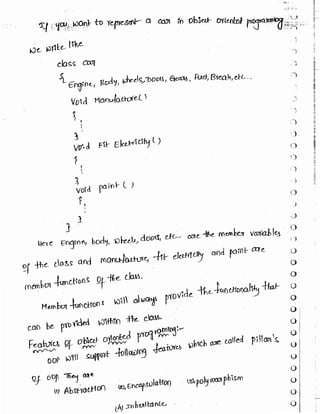 If you want to represent a car in object oriented programming
we write like
class car
{
Engine, Body, wheels, Doors, Gears, Fuel, Break, etc...
Void Manufacture( )
{
}
Void Fit Electricity( )
{
}
void paint ( )
{
}
}
Here Engine, body, wheels, doors, etc— are the member variables
of the class and manufacture, fit electricity and paint are
member functions of the class.
Member functions will always provide the functionality that
can be provided within the class.
Features of object oriented programming:-
OOP will support following features which are called pillar's
of OOP. They are
(1) Abstraction (2) Encapsulation (3) polymorphism
(4) Inheritance.